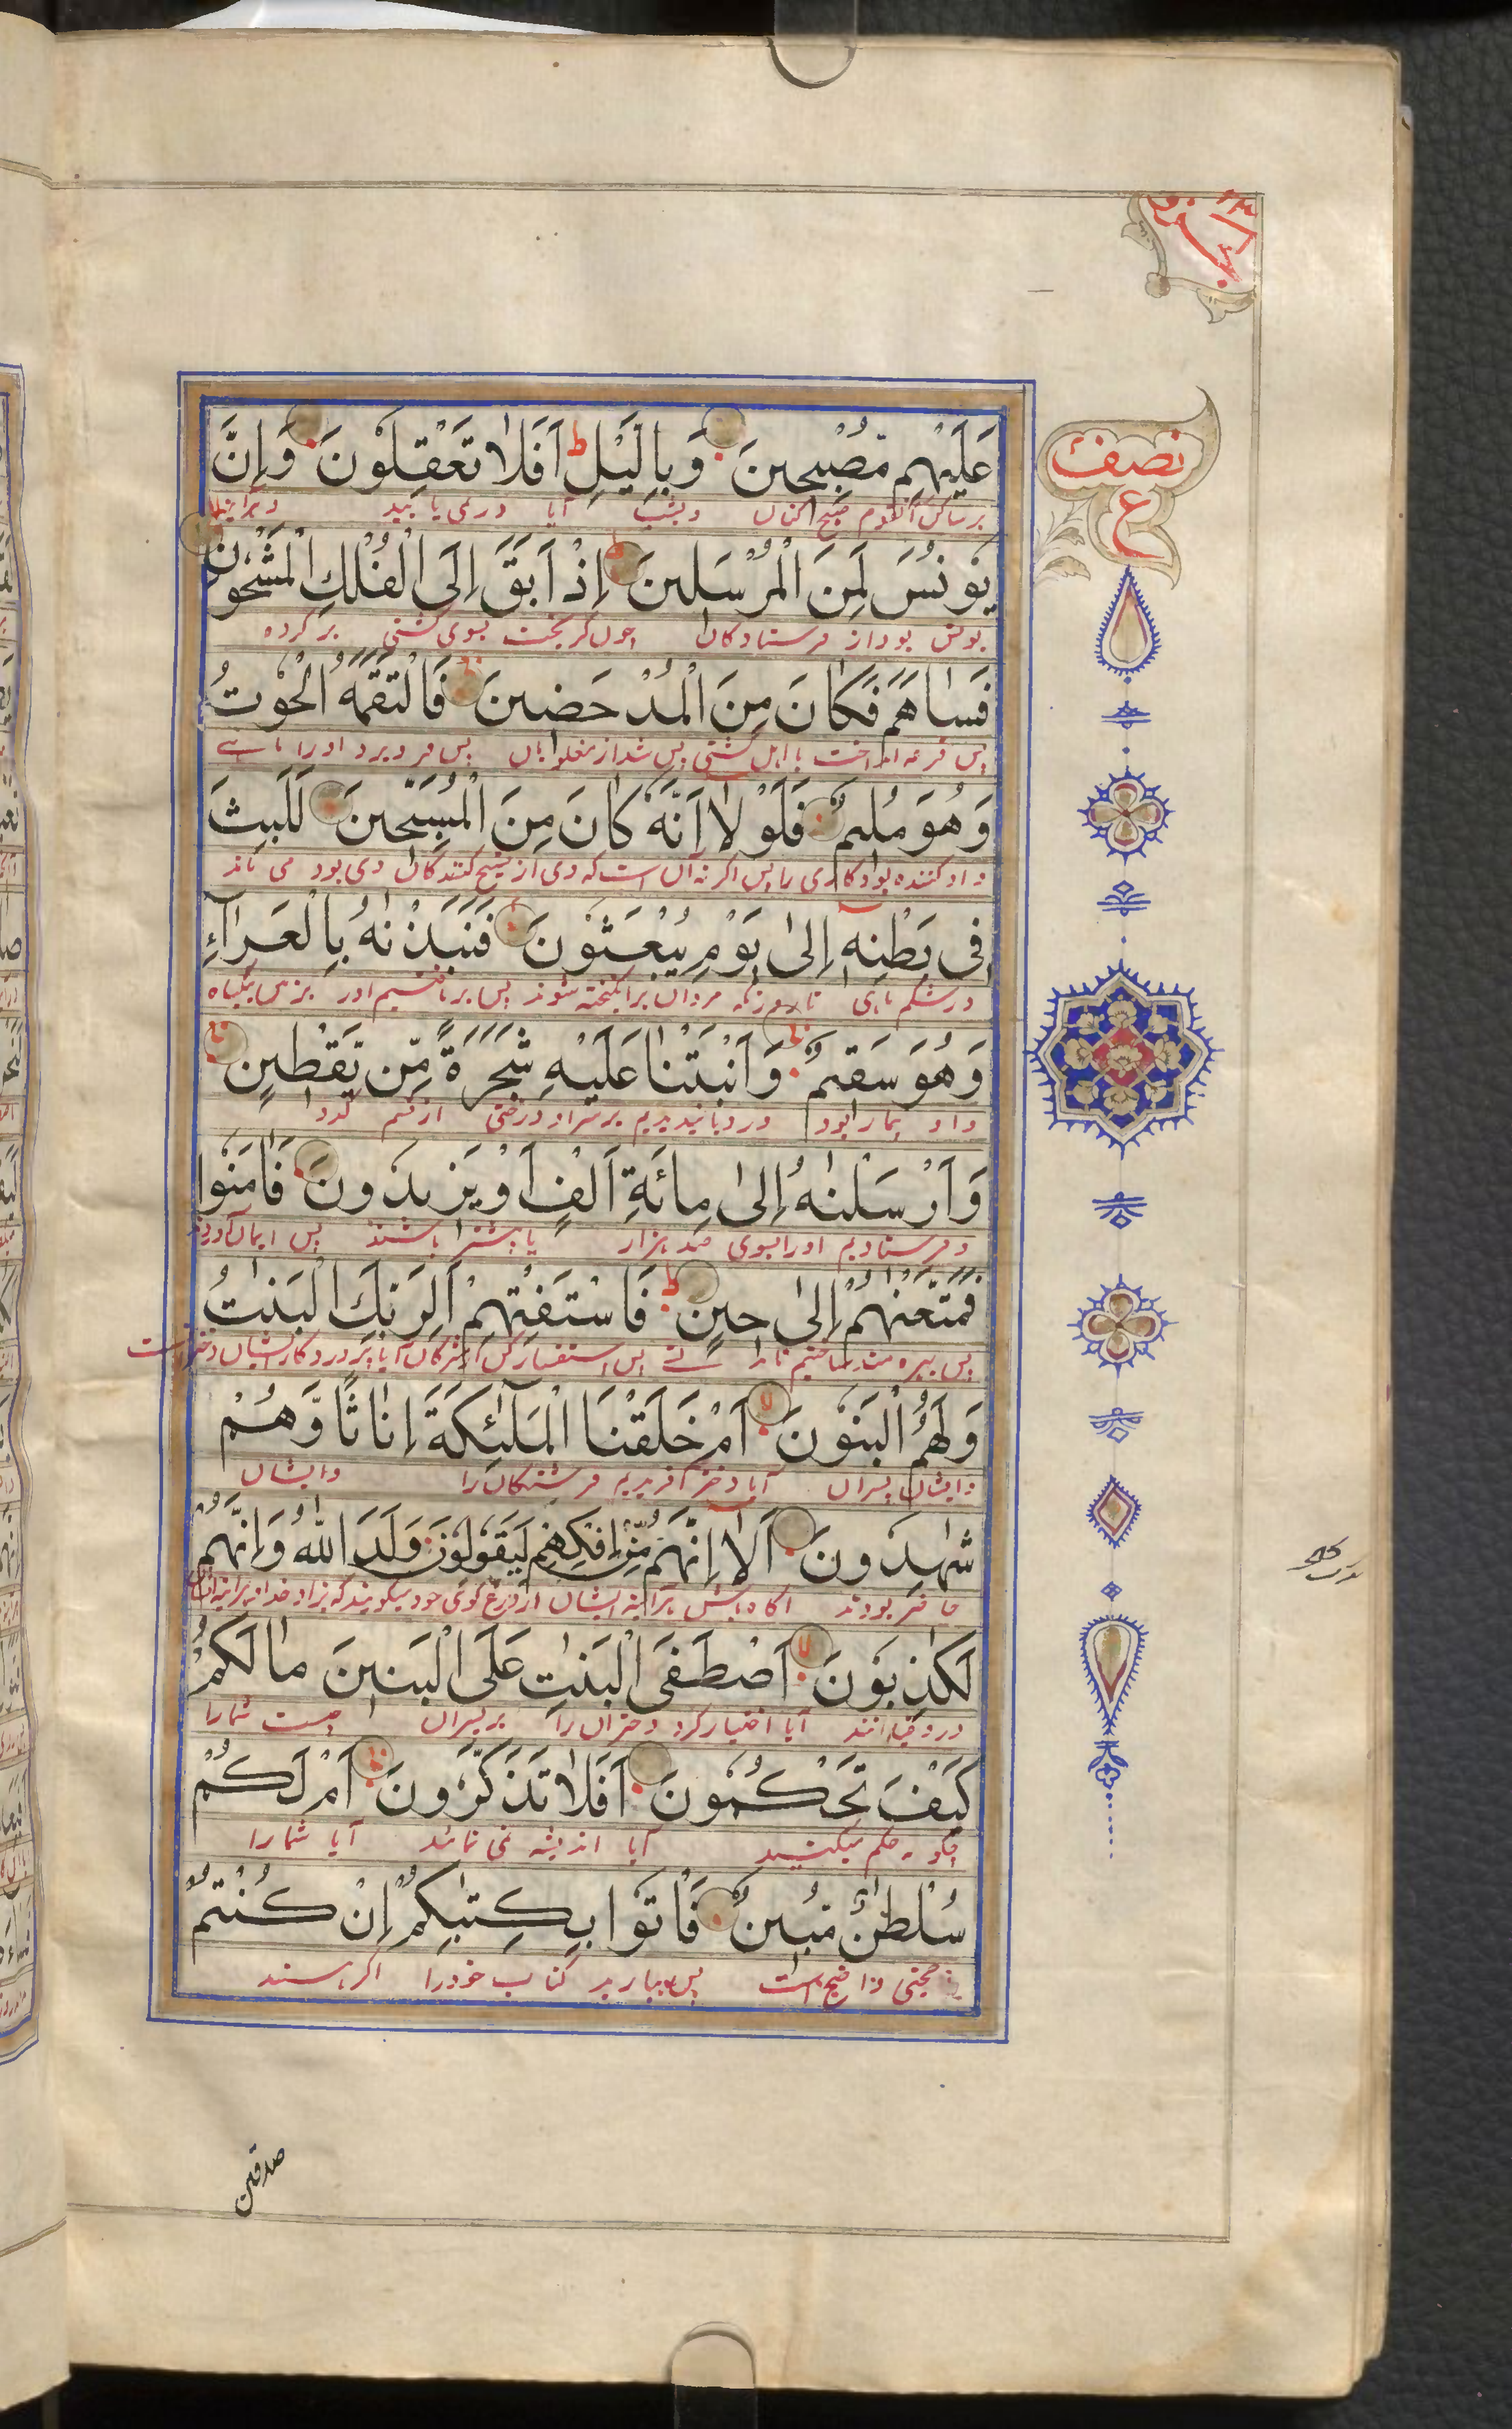 نصف
ع
عَلَيْهِم مُّصْبِحِينَ وَبِالَّيْلِ ط اَفَلَا تَعْقِلُونَ وَاِنَّ
بر ساکن آنقوم صبح کنان وبشب آیا در نمی یابید
يُونُسَ لَمِنَ الْمُرْسَلِينَ اِذْ اَبَقَ اِلَى الْفُلْكِ الْمَشْحُونِ
یونس بود از فرستادکان چون کریخت بسوی کشتی پر کرده
فَسَاهَمَ فَكَانَ مِنَ الْمُدْحَضِينَ فَالْتَقَمَهُ الْحُوتُ
پس قرعه انداخت با اهل کشتی پس شد از مغلوبان پس فرو برد اورا ماهی
وَهُوَ مُلِيمٌ فَلَوْلَا اَنَّهُ كَانَ مِنَ الْمُسَبِّحِينَ لَلَبِثَ
پس اکر نه آن است که وی از تسبیح کنندکان می بود می ماند
فِى بَطْنِهٖ اِلٰى يَوْمِ يُبْعَثُونَ فَنَبَذْنٰهُ بِالْعَرَآءِ
در شکم ماهی تا روزیکه مردان برانکیخته شوند پس
وَهُوَ سَقِيمٌ وَاَنْبَتْنَا عَلَيْهِ شَجَرَةً مِّن يَّقْطِينٍ
واو بیمار بود ورویانیدیم بر سر او درختی از قسم کدو
وَاَرْسَلْنٰهُ اِلٰى مِائَةِ اَلْفٍ اَوْ يَزِيدُونَ فَاٰمَنُوا
وفرستادیم اورا بسوی صد هزار یا بیشتر باشند پس ایمان آوردند
فَمَتَّعْنٰهُمْ اِلٰى حِينٍ ط فَاسْتَفْتِهِمْ اَلِرَبِّكَ الْبَنَاتُ
پس بهره مند ساختیم پس استفسار کن آیا پروردکار ایشان دختر است
وَلَهُمُ الْبَنُونَ لا اَمْ خَلَقْنَا الْمَلٰٓئِكَةَ اِنَاثًا وَّهُمْ
وایشان پسران آیا دختر آفریدیم فرشتکان را وایشان
شٰهِدُونَ اَلَآ اِنَّهُم مِّنْ اِفْكِهِمْ لَيَقُولُونَ وَلَدَ اللّٰهُ وَاِنَّهُمْ
حاضر بودند آکاه باش هرآینه ایشان از دروغ کوئی خود میکویند که بزاد خدا
لَكٰذِبُونَ لا اَصْطَفَى الْبَنٰتِ عَلَى الْبَنِينَ مَا لَكُمْ
آیا اختیار کرد دختران را بر پسران چیست شمارا
كَيْفَ تَحْكُمُونَ اَفَلَا تَذَكَّرُونَ اَمْ لَكُمْ
چکونه حکم میکنید آیا اندیشه نمی نمائید آیا شمارا
سُلْطٰنٌ مُّبِينٌ فَاْتُوا بِكِتٰبِكُمْ اِنْ كُنْتُمْ
حجتی واضح است پس بیارید کتاب خودرا اکر هستند
صدقین